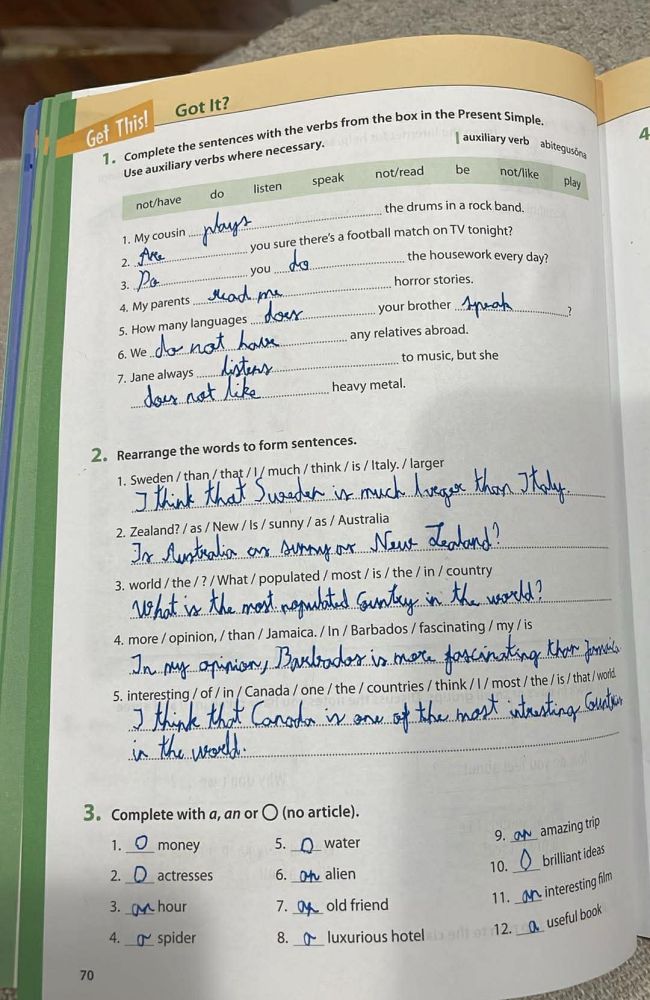 Get This! Got It?
1. Complete the sentences with the verbs from the box in the Present Simple.
Use auxiliary verbs where necessary.
auxiliary verb abitegusõna
4
not/have do listen speak not/read be not/like play
1. My cousin plays the drums in a rock band.
2. Are you sure there's a football match on TV tonight?
3. Do you do the housework every day?
4. My parents read horror stories.
5. How many languages does your brother speak ?
6. We do not have any relatives abroad.
7. Jane always listens to music, but she
does not like heavy metal.
2. Rearrange the words to form sentences.
1. Sweden / than / that / I / much / think / is / Italy. / larger
I think that Sweden is much larger than Italy.
2. Zealand? / as / New / Is / sunny / as / Australia
Is Australia as sunny as New Zealand?
3. world / the / ? / What / populated / most / is / the / in / country
What is the most populated country in the world?
4. more / opinion, / than / Jamaica. / In / Barbados / fascinating / my / is
In my opinion, Barbados is more fascinating than Jamaica
5. interesting / of / in / Canada / one / the / countries / think / I / most / the / is / that / world.
I think that Canada is one of the most intresting Countries
in the world.
3. Complete with a, an or O (no article).
1. O money
2. O actresses
3. an hour
4. a spider
5. O water
6. an alien
7. an old friend
8. a luxurious hotel
9. an amazing trip
10. O brilliant ideas
11. an interesting film
12. a useful book
70